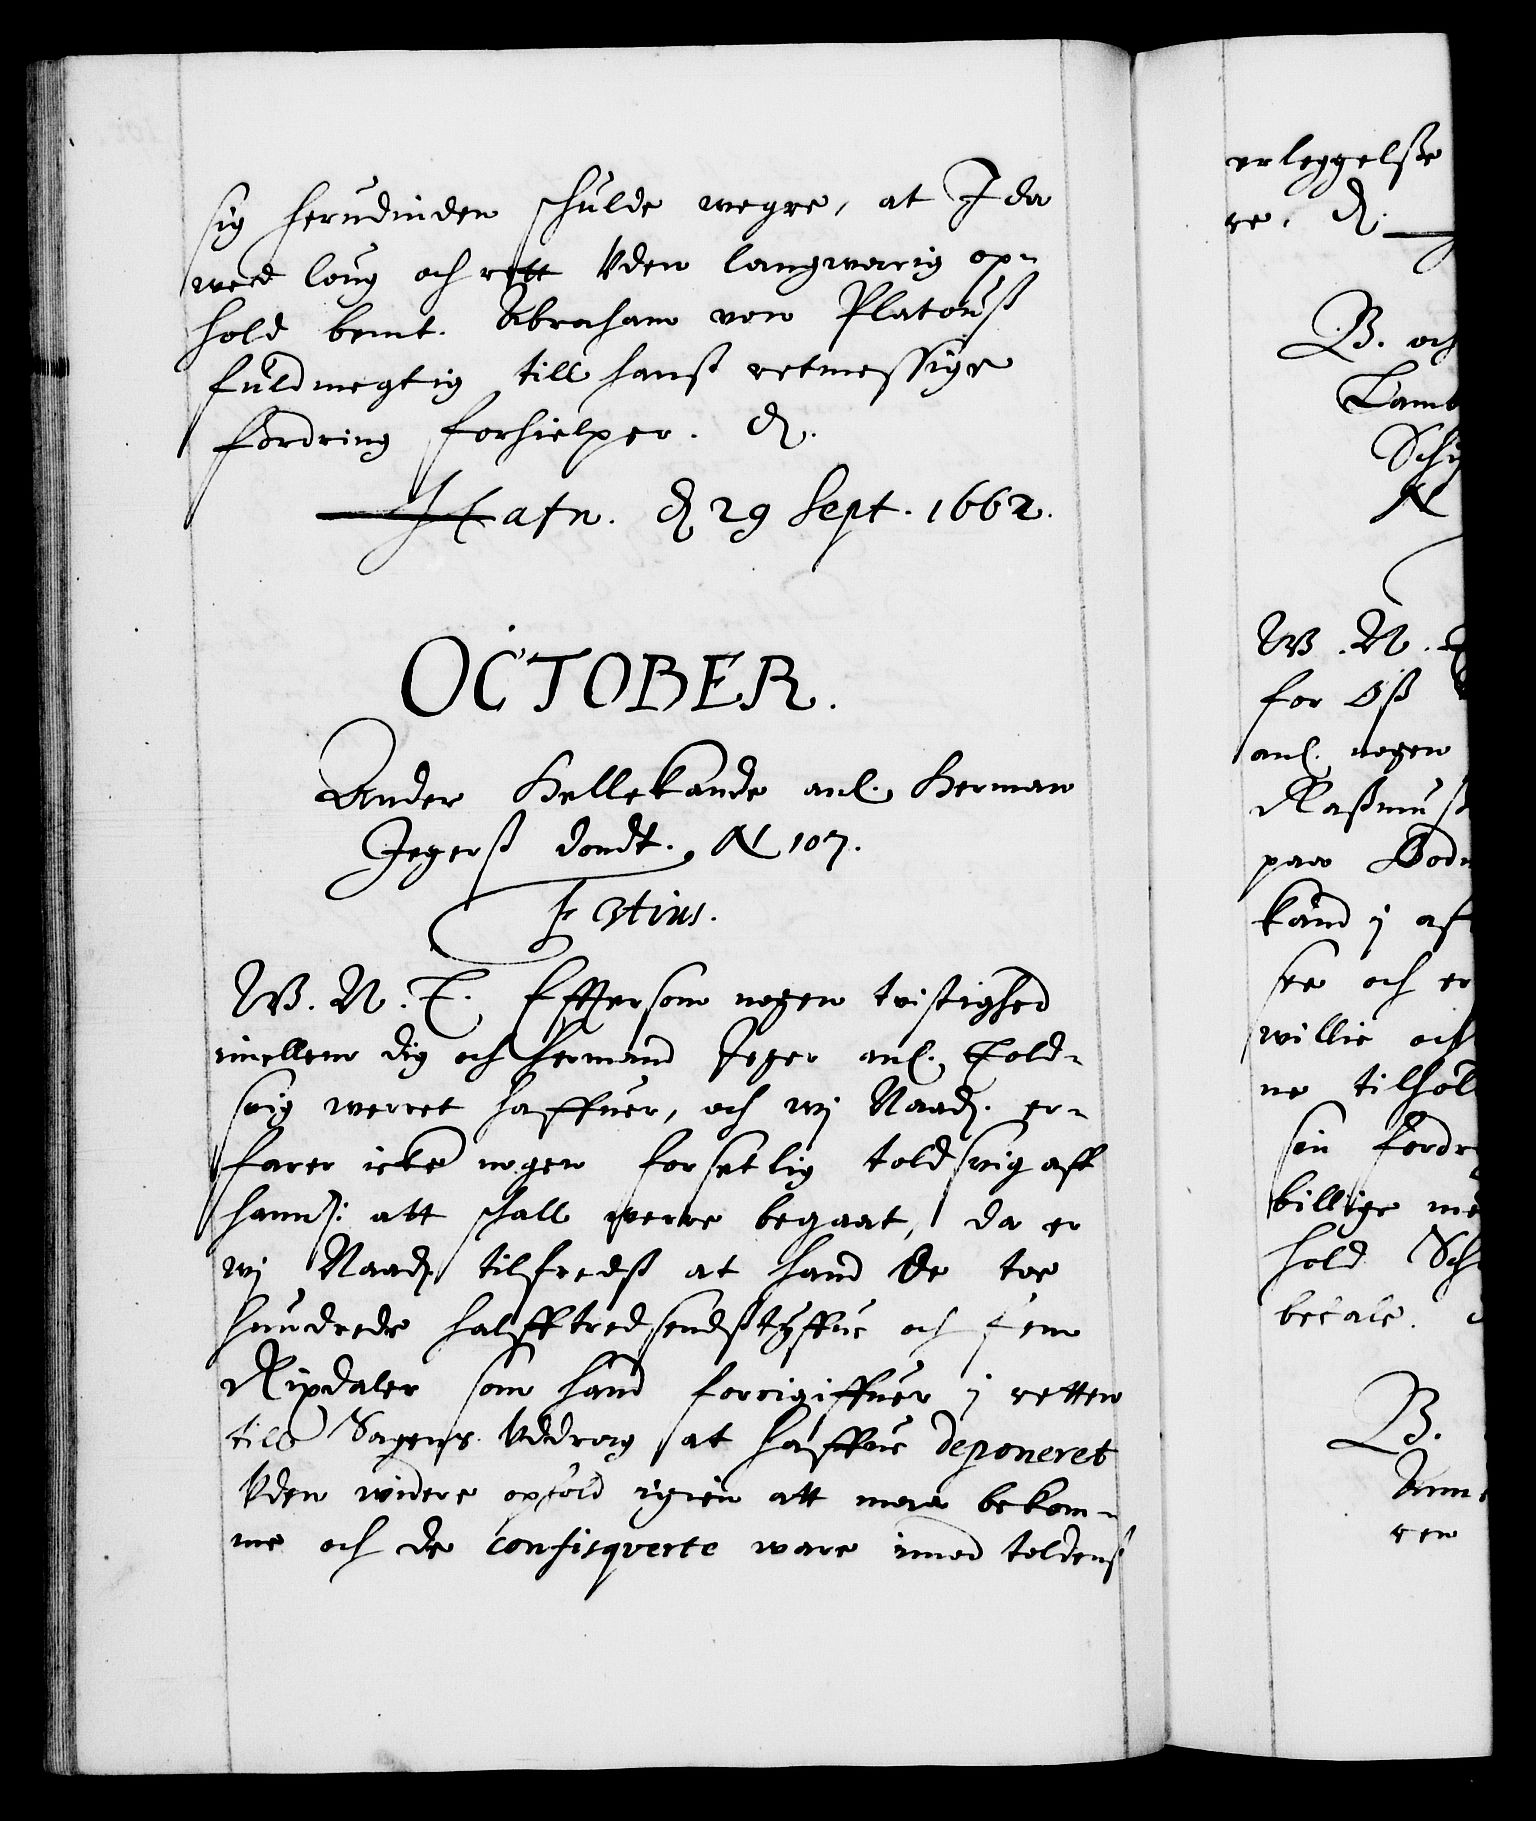 sig herudinden schulde wegre, at I da
med loug och rett Uden langwarig op-
hold bemt. Abraham von Platouß
fuldmegtig till hanß retmessige
fordring forhielper. D.
Hafn. D 29 Sept. 1662.
OCTOBER.
Ander Hellekande anl. Herman
Jegerß Condt. N 107.
W. N. T. Efftersom nogen tvistighed
imellem dig och Hermand Jeger anl. Told-
svig werret haffuer, och wj Naad. er-
farer icke nogen forsetlig toldsvig aff
hannd: att schall werre begaat, da er
wj Naad. tilfredß at hand de toe
hundrede halfftredsendstyffue och fem
Rixdaler som hand forregiffuer j retten
till Sagens Uddrag at haffue deponeret
Uden widere ophold igien att maa bekom-
me och de confisqverte ware imod toldenß
erleggelße
re. D.
B. och
Lamb
N
W. N. T
for Oß
anl. nogen
Raßmuß
paa Bod
kand j aff
see och er
willie och
ne tilhol
sin fordr
billige me
hold Sch
betale.
B.
ren